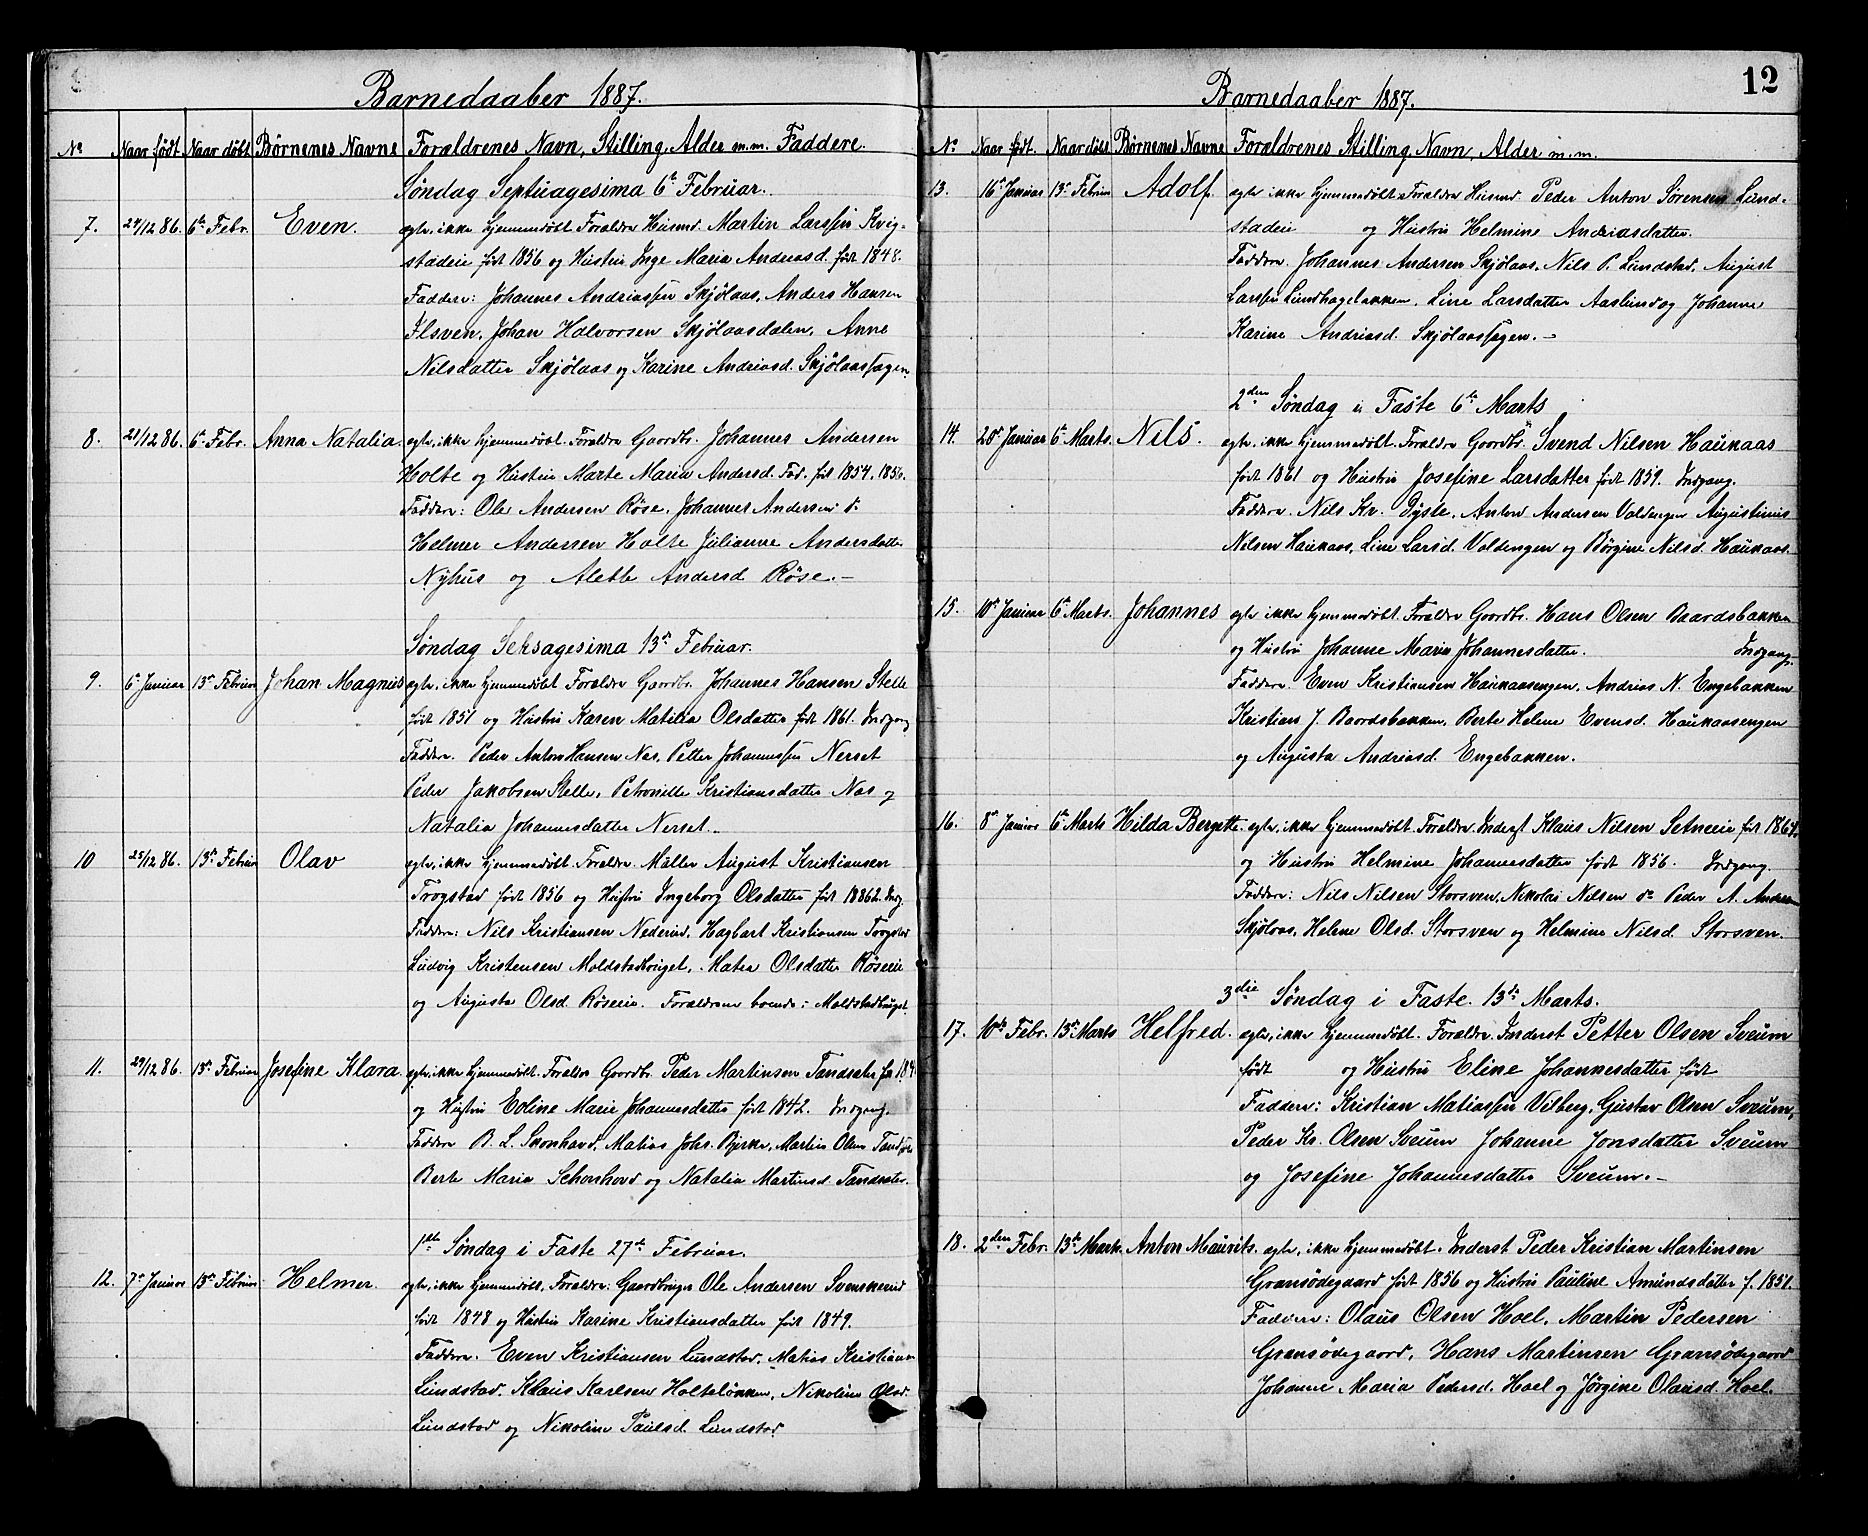 Barnedaaber 1887.
No Naar født. Naar døbt Børnenes Navne Forældrenes Navn, Stilling, Alder m.m. Faddere.
Søndag Septuagesima 6te Februar.
7. 24/12 86. 6te Febr. Even. egte, ikke hjemmedøbt. Forældre Husmd. Martin Larssen Kvig-
stadeie født 1856 og Hustru Inge Maria Andreasd. født 1848.
Faddere: Johannes Andreassen Skjølaas, Anders Hansen
Ilsven, Johan Halvorsen Skjølaasdalen, Anne
Nilsdatter Skjølaas og Karine Andreasd. Skjølaashagen
8. 21/12 86. 6te Febr. Anna Natalia. egte, ikke hjemmedøbt. Forældre Gaardbr. Johannes Andersen
Holte og Hustru Marte Maria Andersd. Fød. født 1854, 1856.
Faddere: Ole Andersen Røse, Johannes Andersen do
Helmer Andersen Holte Julianne Andersdatter
Nyhus og Alette Andersd Røse.-
Søndag Seksagesima 13de Februar.
9. 6te Januar 13de Februar Johan Magnus egte, ikke hjemmedøbt Forældre Gaardbr. Johannes Hansen Stelle
født 1851 og Hustru Karen Matilia Olsdatter født 1861. Indgang
Faddere. Peder Anton Hansen Næs, Petter Johannessen Nerset
Peder Jakobsen Stelle, Petronille Kristiansdatter Næs og
Natalia Johannesdatter Nerset.-
10 25/12 86. 13de Februar Olav egte, ikke hjemmedøbt. Forældre. Møller August Kristiansen
Trogstad født 1856 og Hustru Ingeborg Olsdatter født 18862. Indg.
Faddere: Nils Kristiansen Nederud, Hagbart Kristiansen Trogstad
Ludvig Kristensen Moldstadbruget, Matea Olsdatter Røseeie
og Augusta Olsd. Røseeie. Forældrene boende: Moldstadbruget.
11. 29/12 86. 13de Februar Josefine Klara. egte, ikke hjemmedøbt. Forældre Gaardbr. Peder Martinsen Tandsæter
og Hustru Eoline Marie Johannesdatter født 1842. Indgang.
Faddere B. L. Skonhovd, Matias Johs. Bjerke, Martin Olsen
Berte Maria Schonhovd og Natalia Martinsd. Tandsæter.
1ste Søndag i Faste 27de Februar.
12. 7de Januar 13de Februar Helmer. egte, ikke hjemmedøbt. Forældre. Gaardbruger Ole Andersen Svenskerud
født 1848 og Hustru Karine Kristiansdatter født 1849.
Faddere. Even Kristiansen Lundstad, Matias Kristiansen
Lundstad, Klaus Karlsen Holteløkken, Nikoline Olsd.
Lundstad og Nikoline Paulsd. Lundstad
Barnedaaber 1887.
12
No Naar født. Naar døbt Børnenes Navne Forældrenes Stilling, Navn, Alder m.m.
13. 16de Januar 13de Februar Adolf. egte ikke hjemmedøbt. Forældre Husmd Peder Anton Sørensen Lund-
stadeie og Hustru Helmine Andreasdatter.
Faddere. Johannes Andersen Skjølaas, Nils P. Lundstad, August
Larssen Lundhagebakken, Line Larsdatter Aaslund og Johanne
Karine Andreasd. Skjølaashagen.-
2den Søndag i Faste 6te Marts
14. 28de Januar 6te Marts. Nils. egte, ikke hjemmedøbt. Forældre Gaardbr. Svend Nilsen Haukaas
født 1861 og Hustru Josefine Larsdatter født 1859. Indgang.
Faddere. Nils Kr. Dyste, Anton Andersen Voldengen Augustinus
Nilsen Haukaas, Line Larsd. Voldengen og Børgine Nilsd. Haukaas.
15. 10de Januar 6te Marts. Johannes egte, ikke hjemmedøbt. Forældre Gaardbr. Hans Olsen Baardsbakken
og Hustru Johanne Maria Johannesdatter. Indgang.
Faddere. Even Kristiansen Haukaasengen, Andreas N. Engebakken
Kristian J. Baardsbakken, Berte Helene Evensd. Haukaasengen
og Augusta Andreasd. Engebakken.
16. 8de Januar 6te Marts Hilda Bergette. egte, ikke hjemmedøbt. Forældre. Inderst Klaus Nilsen Setneeie født 1864.
og Hustru Helmine Johannesdatter født 1856. Indgang.
Faddere: Nils Nilsen Storsven, Nikolai Nilsen do Peder A. Andersen
Skjølaas, Helene Olsd. Storsven og Helmine Nilsd. Storsven.
3die Søndag i Faste. 13de Marts.
17. 10de Febr. 13de Marts Helfred. egte, ikke hjemmedøbt. Forældre. Inderst Petter Olsen Sveum
født og Hustru Eline Johannesdatter født
Faddere: Kristian Matiassen Vilberg, Gustav Olsen Sveum,
Peder Kr. Olsen Sveum Johanne Jonsdatter Sveum
og Josefine Johannesdatter Sveum.-
18. 2den Febr. 13de Marts. Anton Mauvits. egte, ikke hjemmedøbt. Inderst Peder Kristian Martinsen
Gransødegaard født 1856 og Hustru Pauline Amundsdatter f. 1851.
Faddere: Olaus Olsen Hoel, Martin Pedersen
Gransødegaard, Hans Martinsen Gransødegaard
Johanne Maria Pedersd. Hoel og Jørgine Olausd. Hoel.